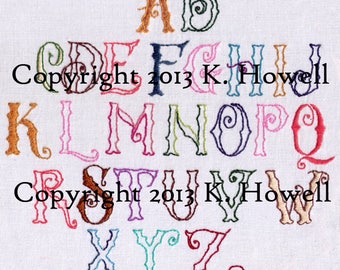 A B
C D E F G H I J
Copyright 2013 K. Howell
K L M N O P Q
Copyright 2013 K. Howell
R S T U V W
X Y Z